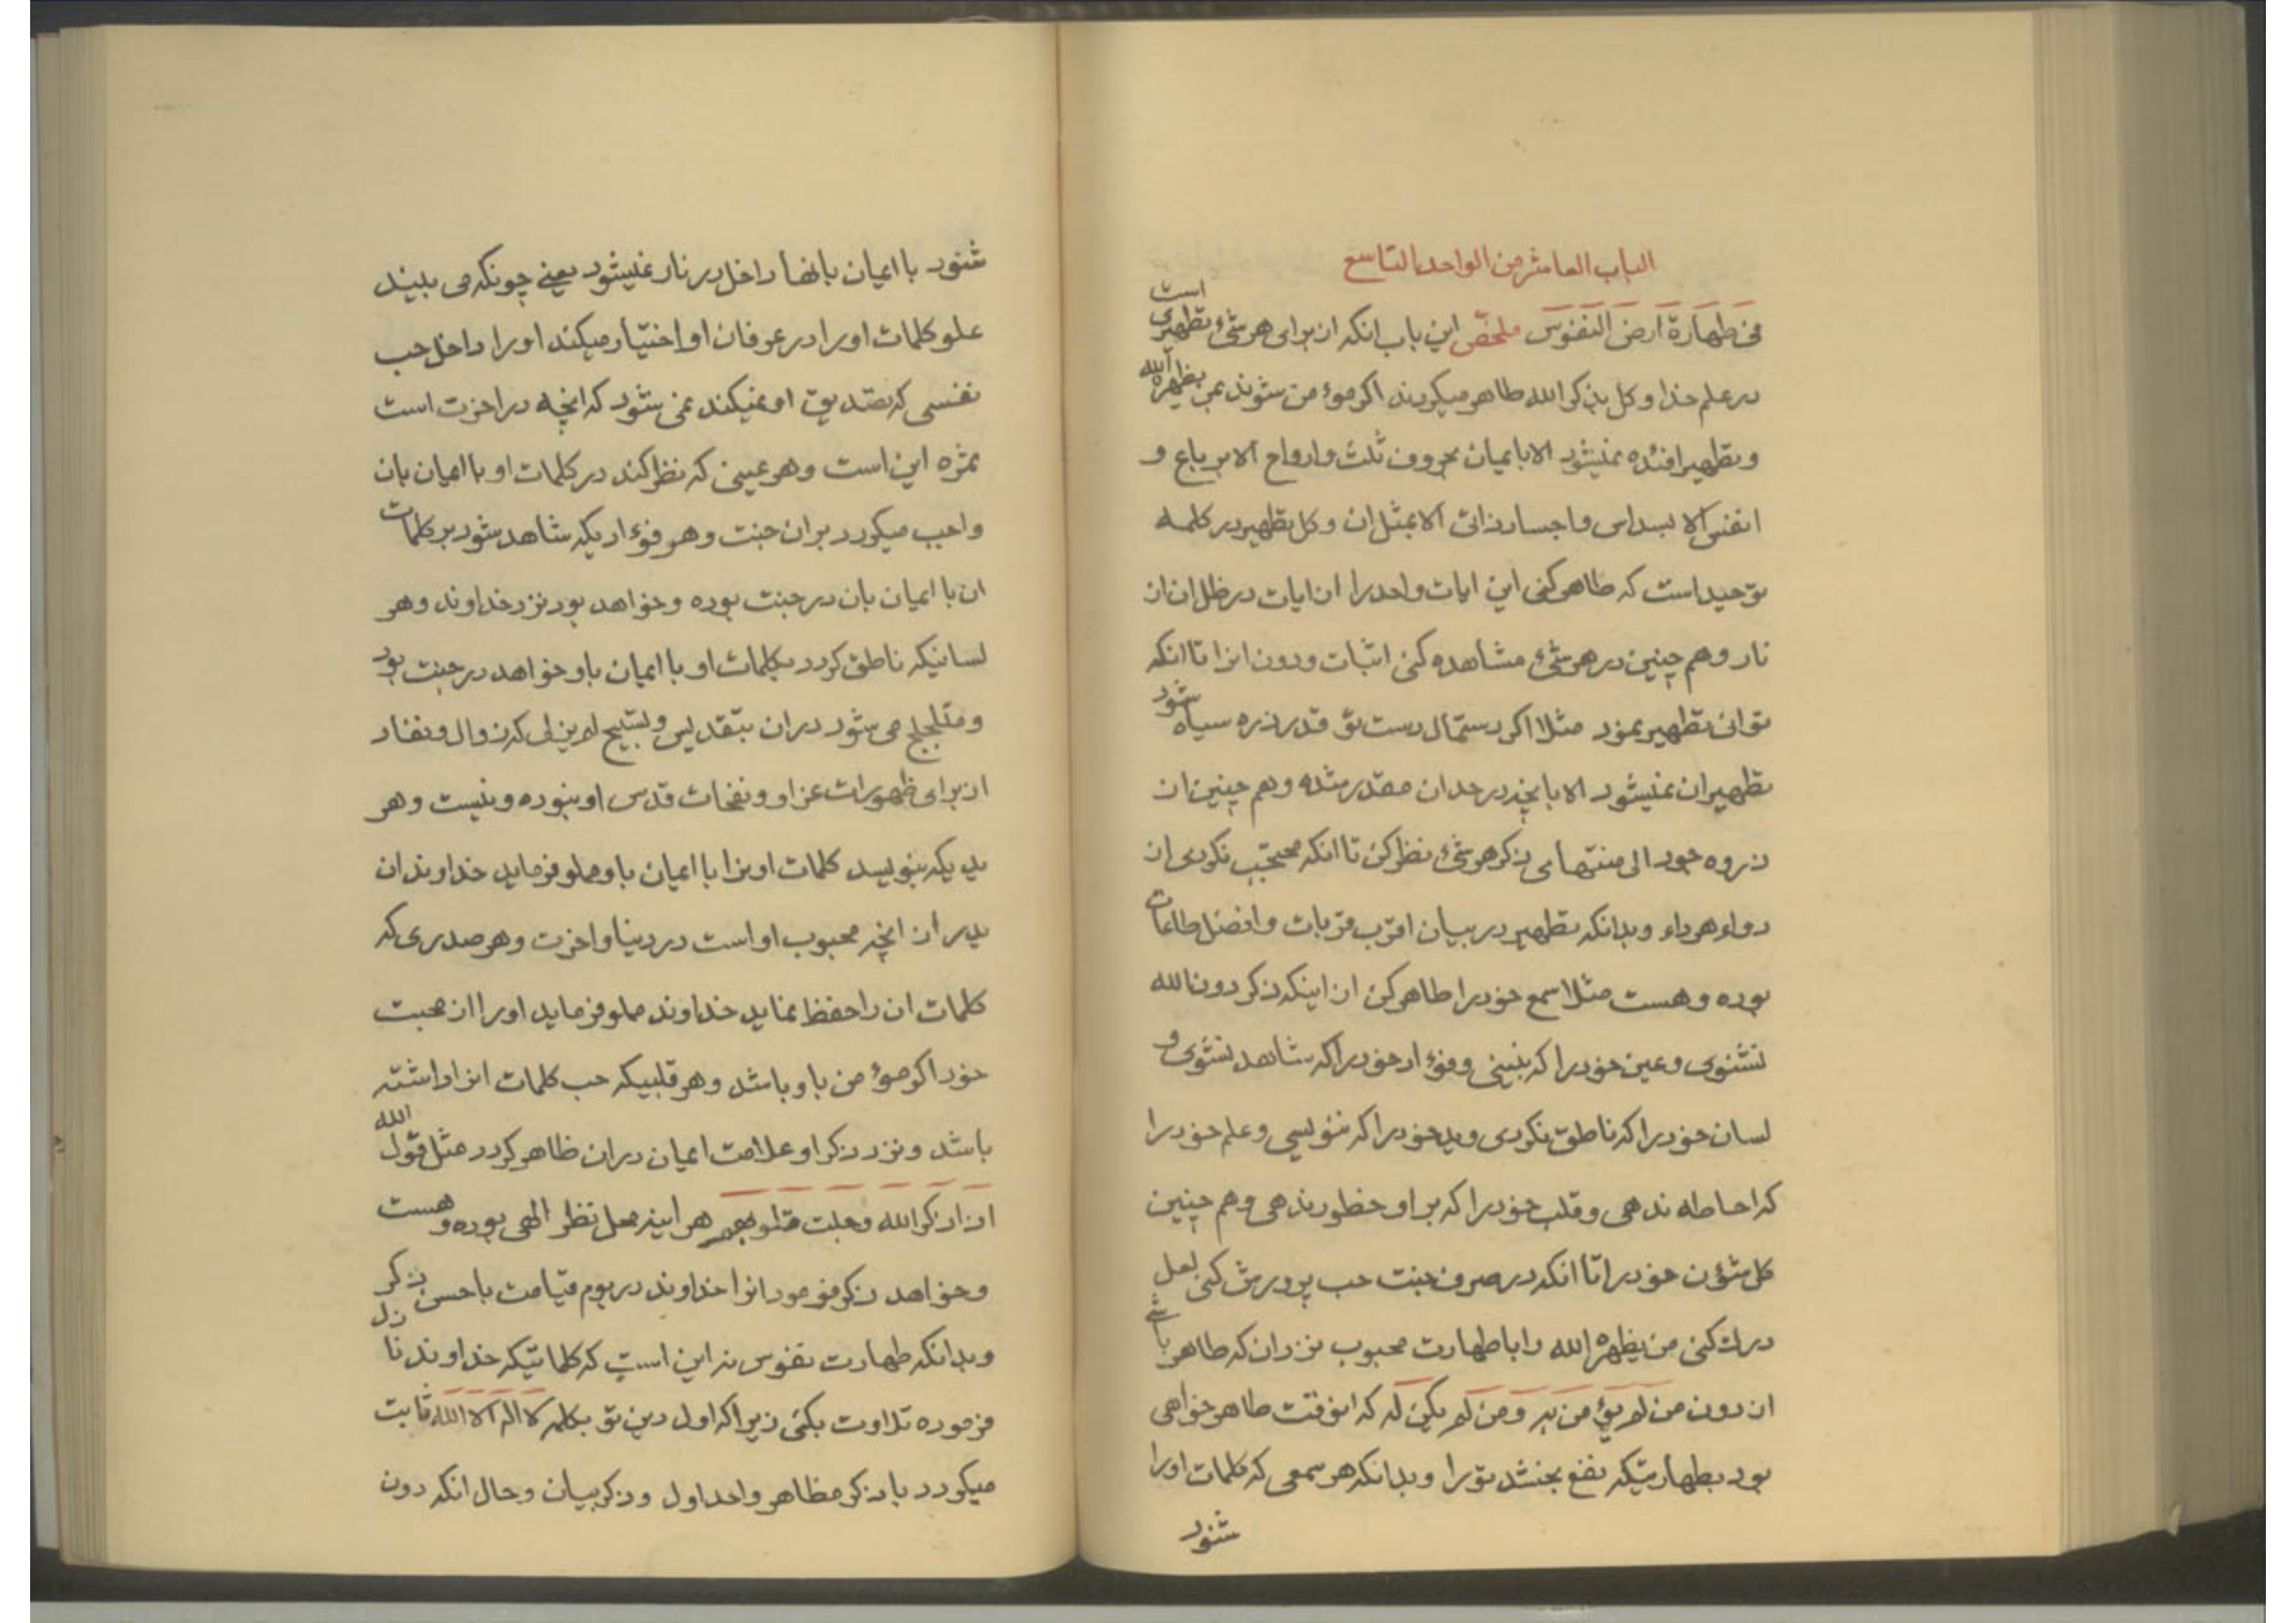 الباب العاشر من الواحد التاسع
فی طهارة ارض النفوس ملخص این باب انکه از برای هر شیٔ تطهیری است
در علم خدا و کل بذکر الله طاهر میکردند اکر موءمن شوند بمن یظهره الله
و تطهیر افئده نمیشود الا بایمان بحروف ثلث و ارواح الا برباع و
انفس الا بسداس و اجساد ذاتی الا بمثل ان و کل تطهیر در کلمه
توحید است که طاهر کنی این ایات واحد را از ایات در ظل ان از
نار و هم چنین در هر شیٔ مشاهده کنی اثبات و دون انرا تا انکه
توانی تطهیر نمود مثلا اکر دستمال دست تو قدر ذره سیاه شود
تطهیر ان نمیشود الا بانچه در حد ان مقدر شده و هم چنین از
ذروه جود الی منتهای ذکر هر شیٔ نظر کن تا انکه محتجب نکردی از
دواء هر داء و بدانکه تطهیر در بیان اقرب قربات و افضل طاعات
بوده و هست مثلا سمع خود را طاهر کن از اینکه ذکر دون الله
نشنوی و عین خود را که نبینی و فوءاد خود را که شاهد نشوی و
لسان خود را که ناطق نکردی و ید خود را که ننویسی و علم خود را
که احاطه ندهی و قلب خود را که بر او خطور ندهی و هم چنین
کل شؤن خود را تا انکه در صرف جنت حب پرورش کنی لعل
درک کنی من یظهره الله را با طهارت محبوب نزد ان که طاهر باشی
از دون من لم یؤمن به و من لم یکن له که انوقت طاهر خواهی
بود بطهارتیکه نفع بخشد تو را و بدانکه هر سمعی که کلمات او را
شنود
شنود با ایمان بانها داخل در نار نمیشود یعنی چونکه می بیند
علو کلمات او را در عرفان او اختیار میکند او را داخل حب
نفسی که تصدیق او نمیکند نمی شود که انچه در اخرت است
ثمره این است و هر عینی که نظر کند در کلمات او با ایمان بان
واجب میکردد بر ان جنت و هر فوءادیکه شاهد شود بر کلمات
ان با ایمان بان در جنت بوده و خواهد بود نزد خداوند و هر
لسانیکه ناطق کردد بکلمات او با ایمان باو خواهد در جنت بود
و متلجلج می شود در ان بتقدیس و تسبیح لم یزلی که زوال و نفاد
از برای ظهورات عز او و نفحات قدس او نبوده و نیست و هر
یدیکه بنویسد کلمات او را با ایمان باو مملو فرماید خداوند ان
ید را از انچه محبوب او است در دنیا و اخرت و هر صدری که
کلمات ان را حفظ نماید خداوند مملو فرماید او را از محبت
خود اکر موءمن باو باشد و هر قلبیکه حب کلمات انرا داشته
باشد و نزد ذکر او علامت ایمان در ان ظاهر کردد مثل قول الله
اذا ذکر الله وجلت قلوبهم هر اینه محل نظر الهی بوده و هست
و خواهد ذکر فرمود انرا خداوند در یوم قیامت باحسن ذکر
و بدانکه طهارت نفوس نه این است که کلماتیکه خداوند نازل
فرموده تلاوت بکنی زیرا که اول دین تو بکلمه لا اله الا الله ثابت
میکردد یا ذکر مظاهر واحد اول و ذکر بیان و حال انکه دون